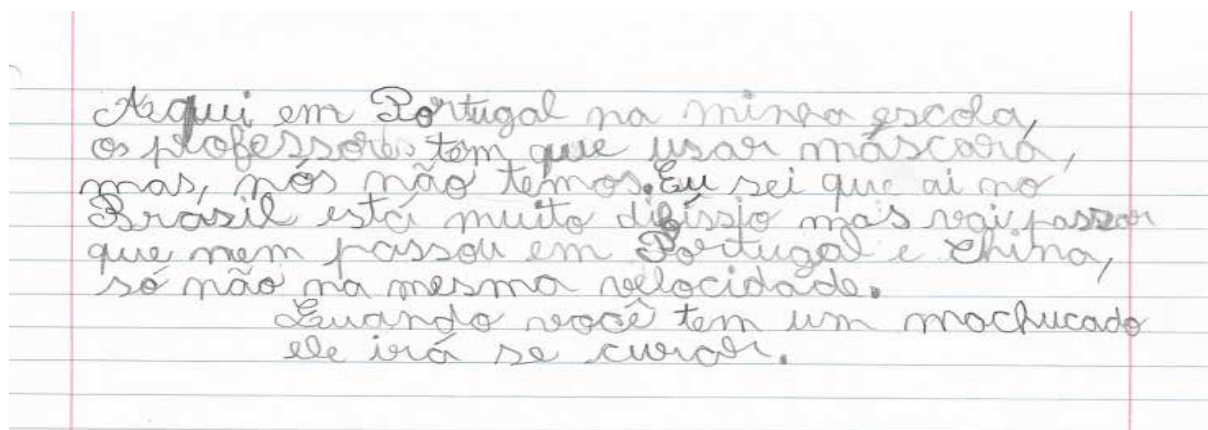 Aqui em Portugal na minha escola,
os professores tem que usar máscara,
mas, nós não temos. Eu sei que ai no
Brasil está muito difissio mas vai passar
que nem passou em Portugal e China,
só não na mesma velocidade.
Quando você tem um machucado
ele irá se curar.